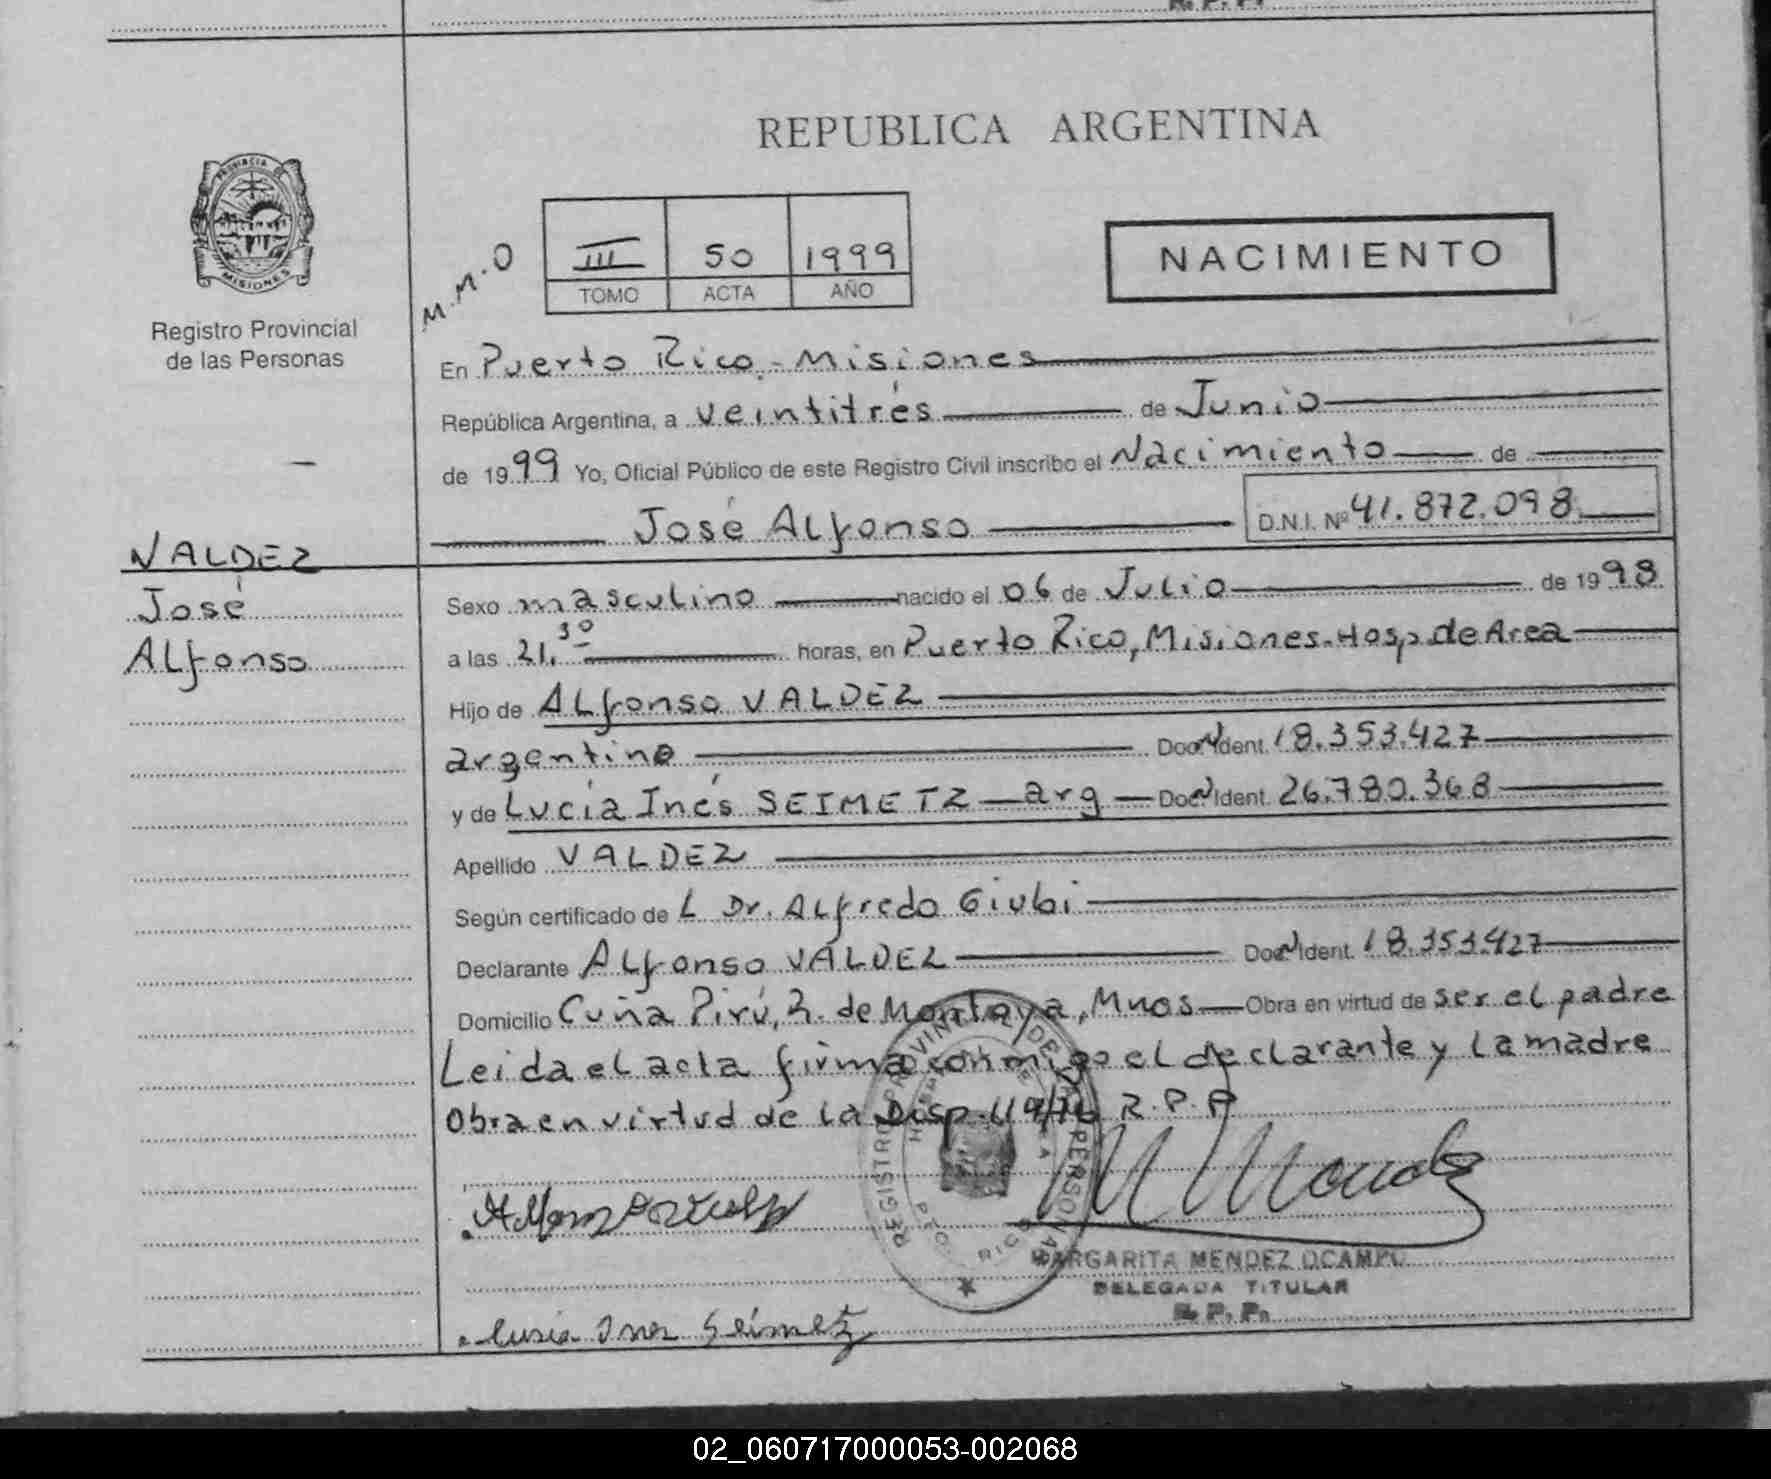 R. P. P.
REPUBLICA ARGENTINA
PROVINCIA DE
MISIONES
Registro Provincial
de las Personas
M.M.O
III 50 1999
TOMO ACTA AÑO
NACIMIENTO
En Puerto Rico - Misiones
República Argentina, a veintitrés de Junio
de 1999 Yo, Oficial Público de este Registro Civil inscribo el Nacimiento de
José Alfonso D.N.I. Nº 41.872.098
VALDEZ
José
Alfonso
Sexo masculino nacido el 06 de Julio de 1998
a las 21.30 horas, en Puerto Rico, Misiones-Hosp de Area
Hijo de Alfonso VALDEZ
argentino Doc. Ident. 18.353.427
y de Lucía Inés SEIMETZ - arg - Doc. Ident. 26.780.368
Apellido VALDEZ
Según certificado de L Dr. Alfredo Giubi
Declarante Alfonso VALDEZ Doc. Ident. 18.353.427
Domicilio Cuña Pirú, R. de Montoya, Mnos - Obra en virtud de ser el padre
Leida el acta firma conmigo el declarante y la madre
Obra en virtud de la Disp. 119/76 R.P.P
REGISTRO PROVINCIAL DE LAS PERSONAS
PTO. RICO
MARGARITA MENDEZ OCAMPO
DELEGADA TITULAR
R. P. P.
Lucia Ines Seimetz
02_060717000053-002068